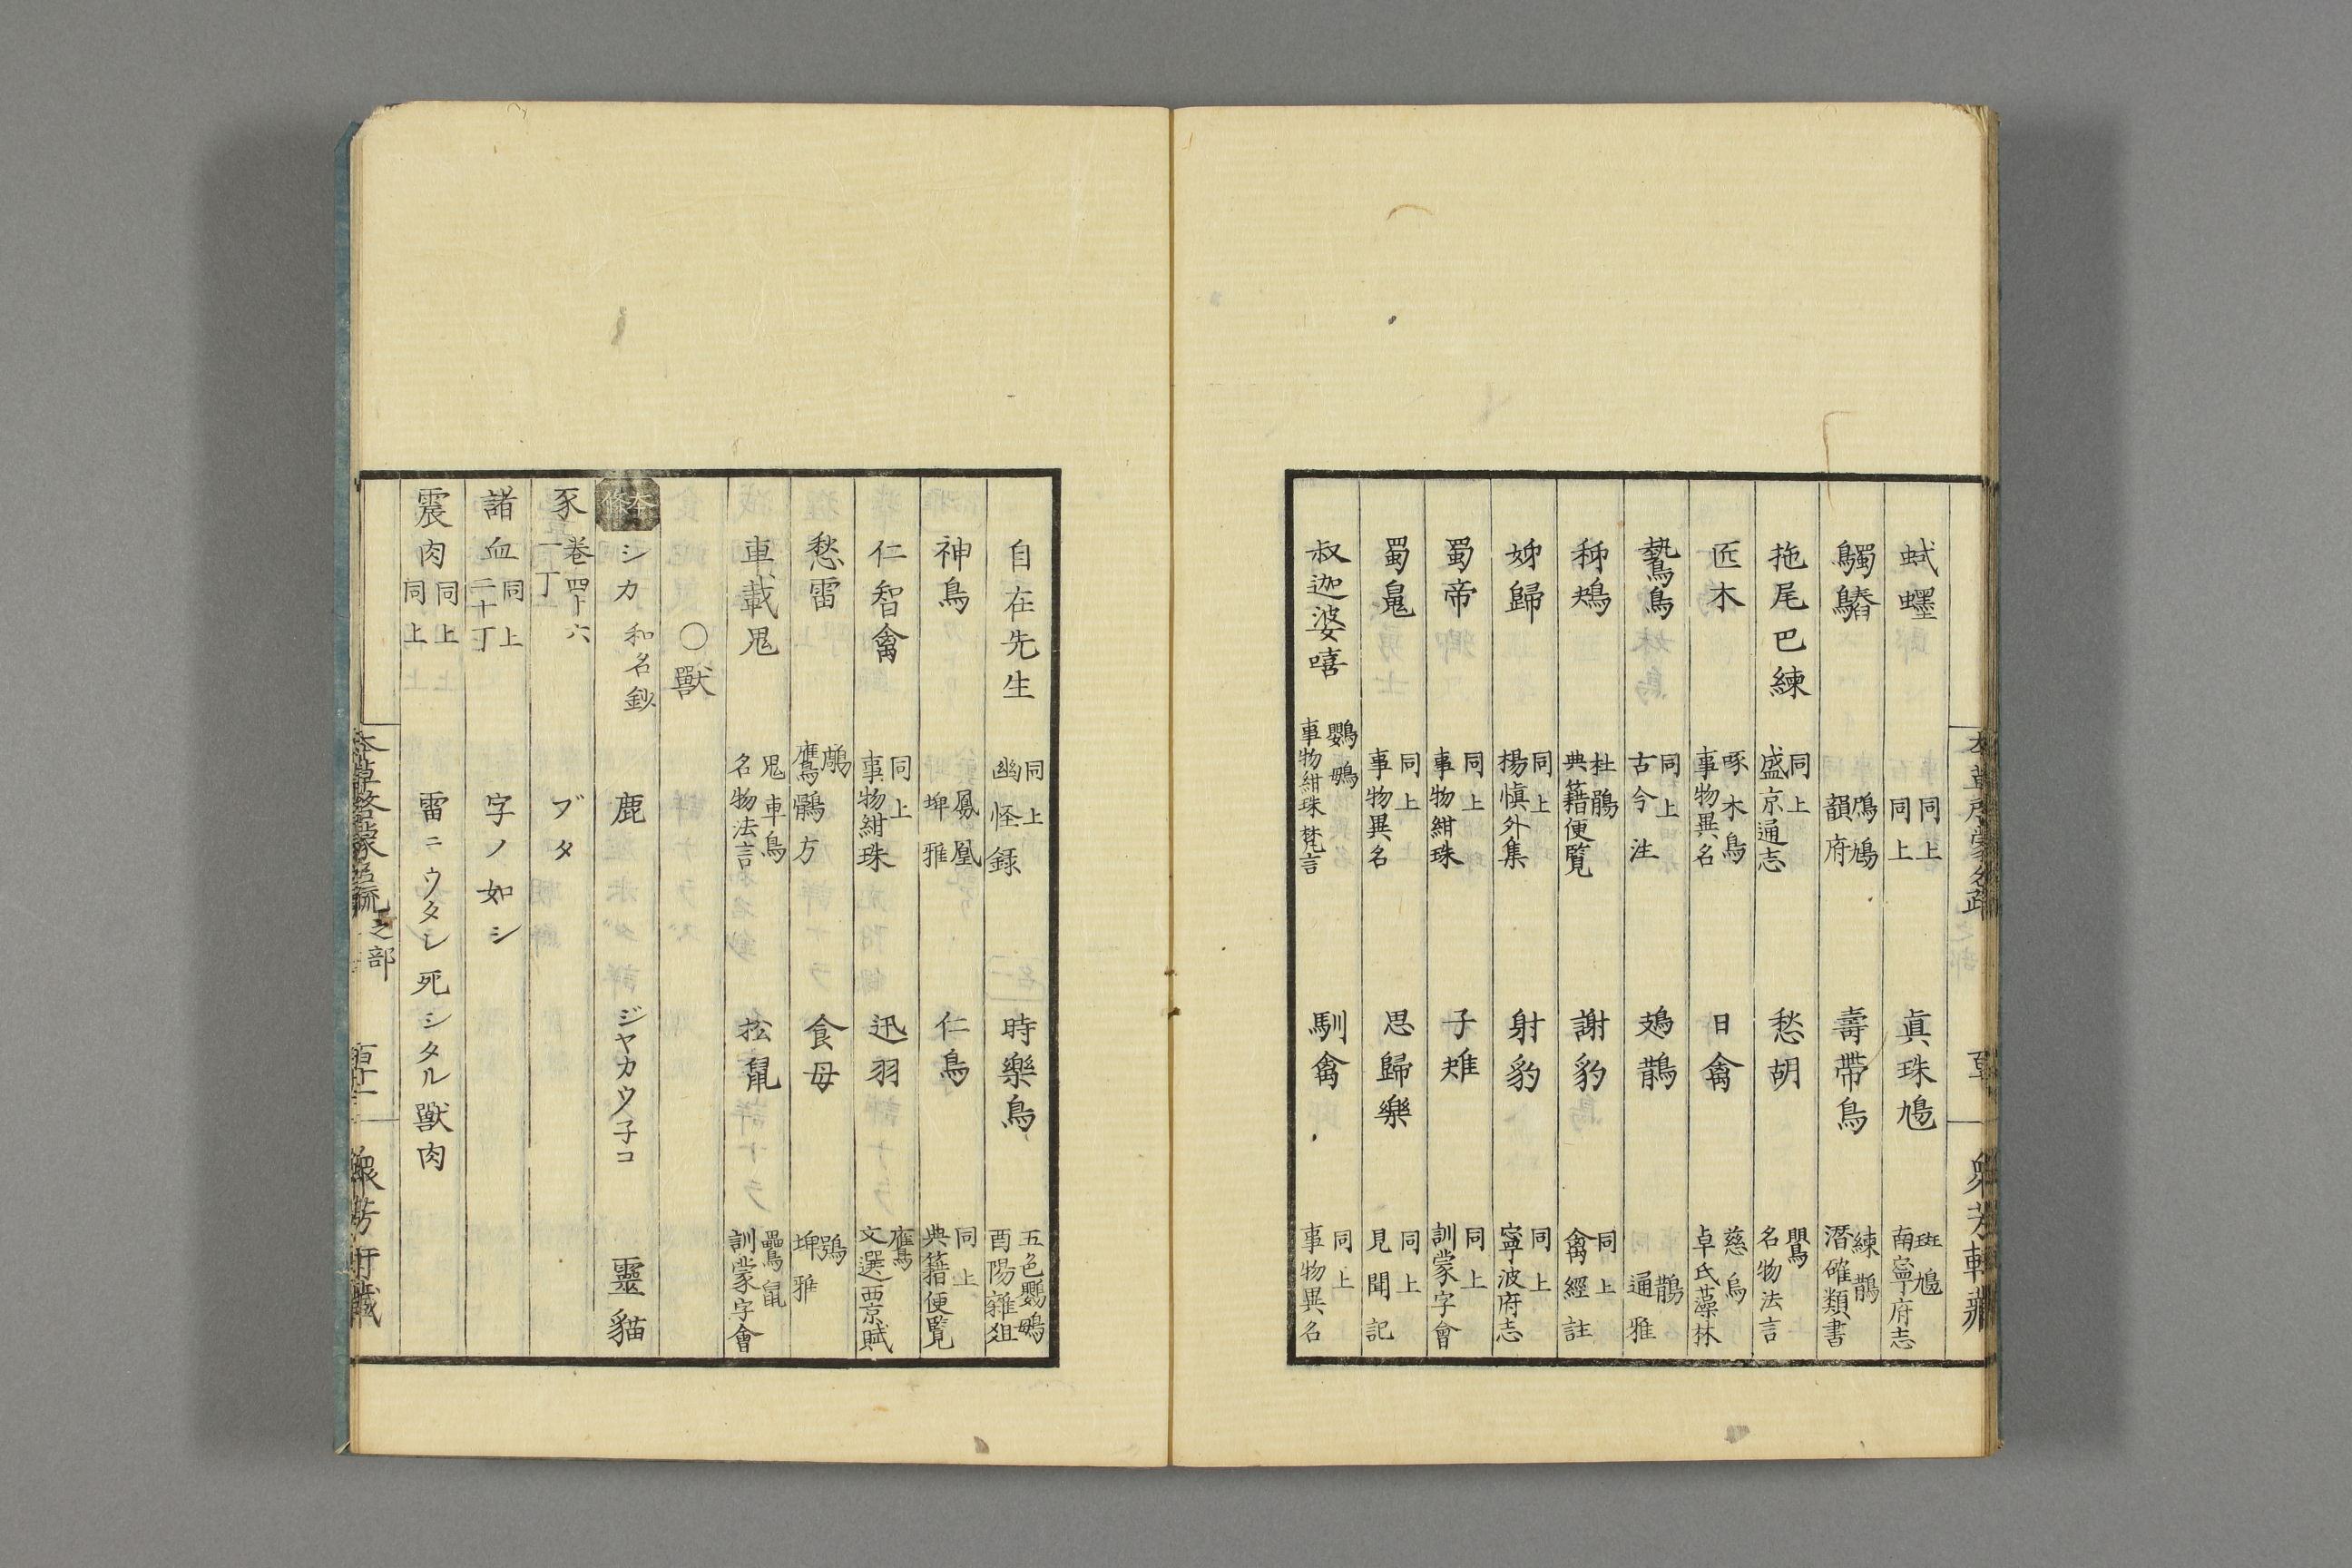 眞珠鳩 斑鳩 南寧府志
鴋鳩 韻府 壽帶鳥 練鵲 潛確類書
拖尾巴練 同上 盛京通志 愁胡 鸎 名物法言
匠木 啄木鳥 事物異名 日禽 慈烏 卓氏藻林
鷙鳥 同上 古今注 鴂鵲 鵲 通雅
杜鵑 典籍便覽 謝豹 同上 禽經註
姊歸 同上 楊愼外集 射豹 同上 寧波府志
蜀帝 同上 事物紺珠 子雉 同上 訓蒙字會
蜀鳧 同上 事物異名 思歸樂 同上 見聞記
叔迦婆嘻 鸚鵡 事物紺珠 梵言 馴禽 同上 事物異名
自在先生 同上 幽怪録 時樂鳥 五色鸚鵡 酉陽雜俎
神鳥 鳳凰 埤雅 仁鳥 同上 典籍便覽
仁智禽 同上 事物紺珠 迅羽 鷹 文選西京賦
愁雷 鷹鶻方 食母 鴞 埤雅
車載鬼 鬼車鳥 名物法言 松鼠 鸓鼠 訓蒙字會
○獸
本條 シカ 和名鈔 鹿 ジヤカウ子コ 靈貓
豕 卷四十六 一丁 ブタ
諸血 同上 二十丁 字ノ如シ
震肉 同上 同上 雷ニウタレ死シタル獸肉
本草啓蒙名疏 之部 衆芳軒藏